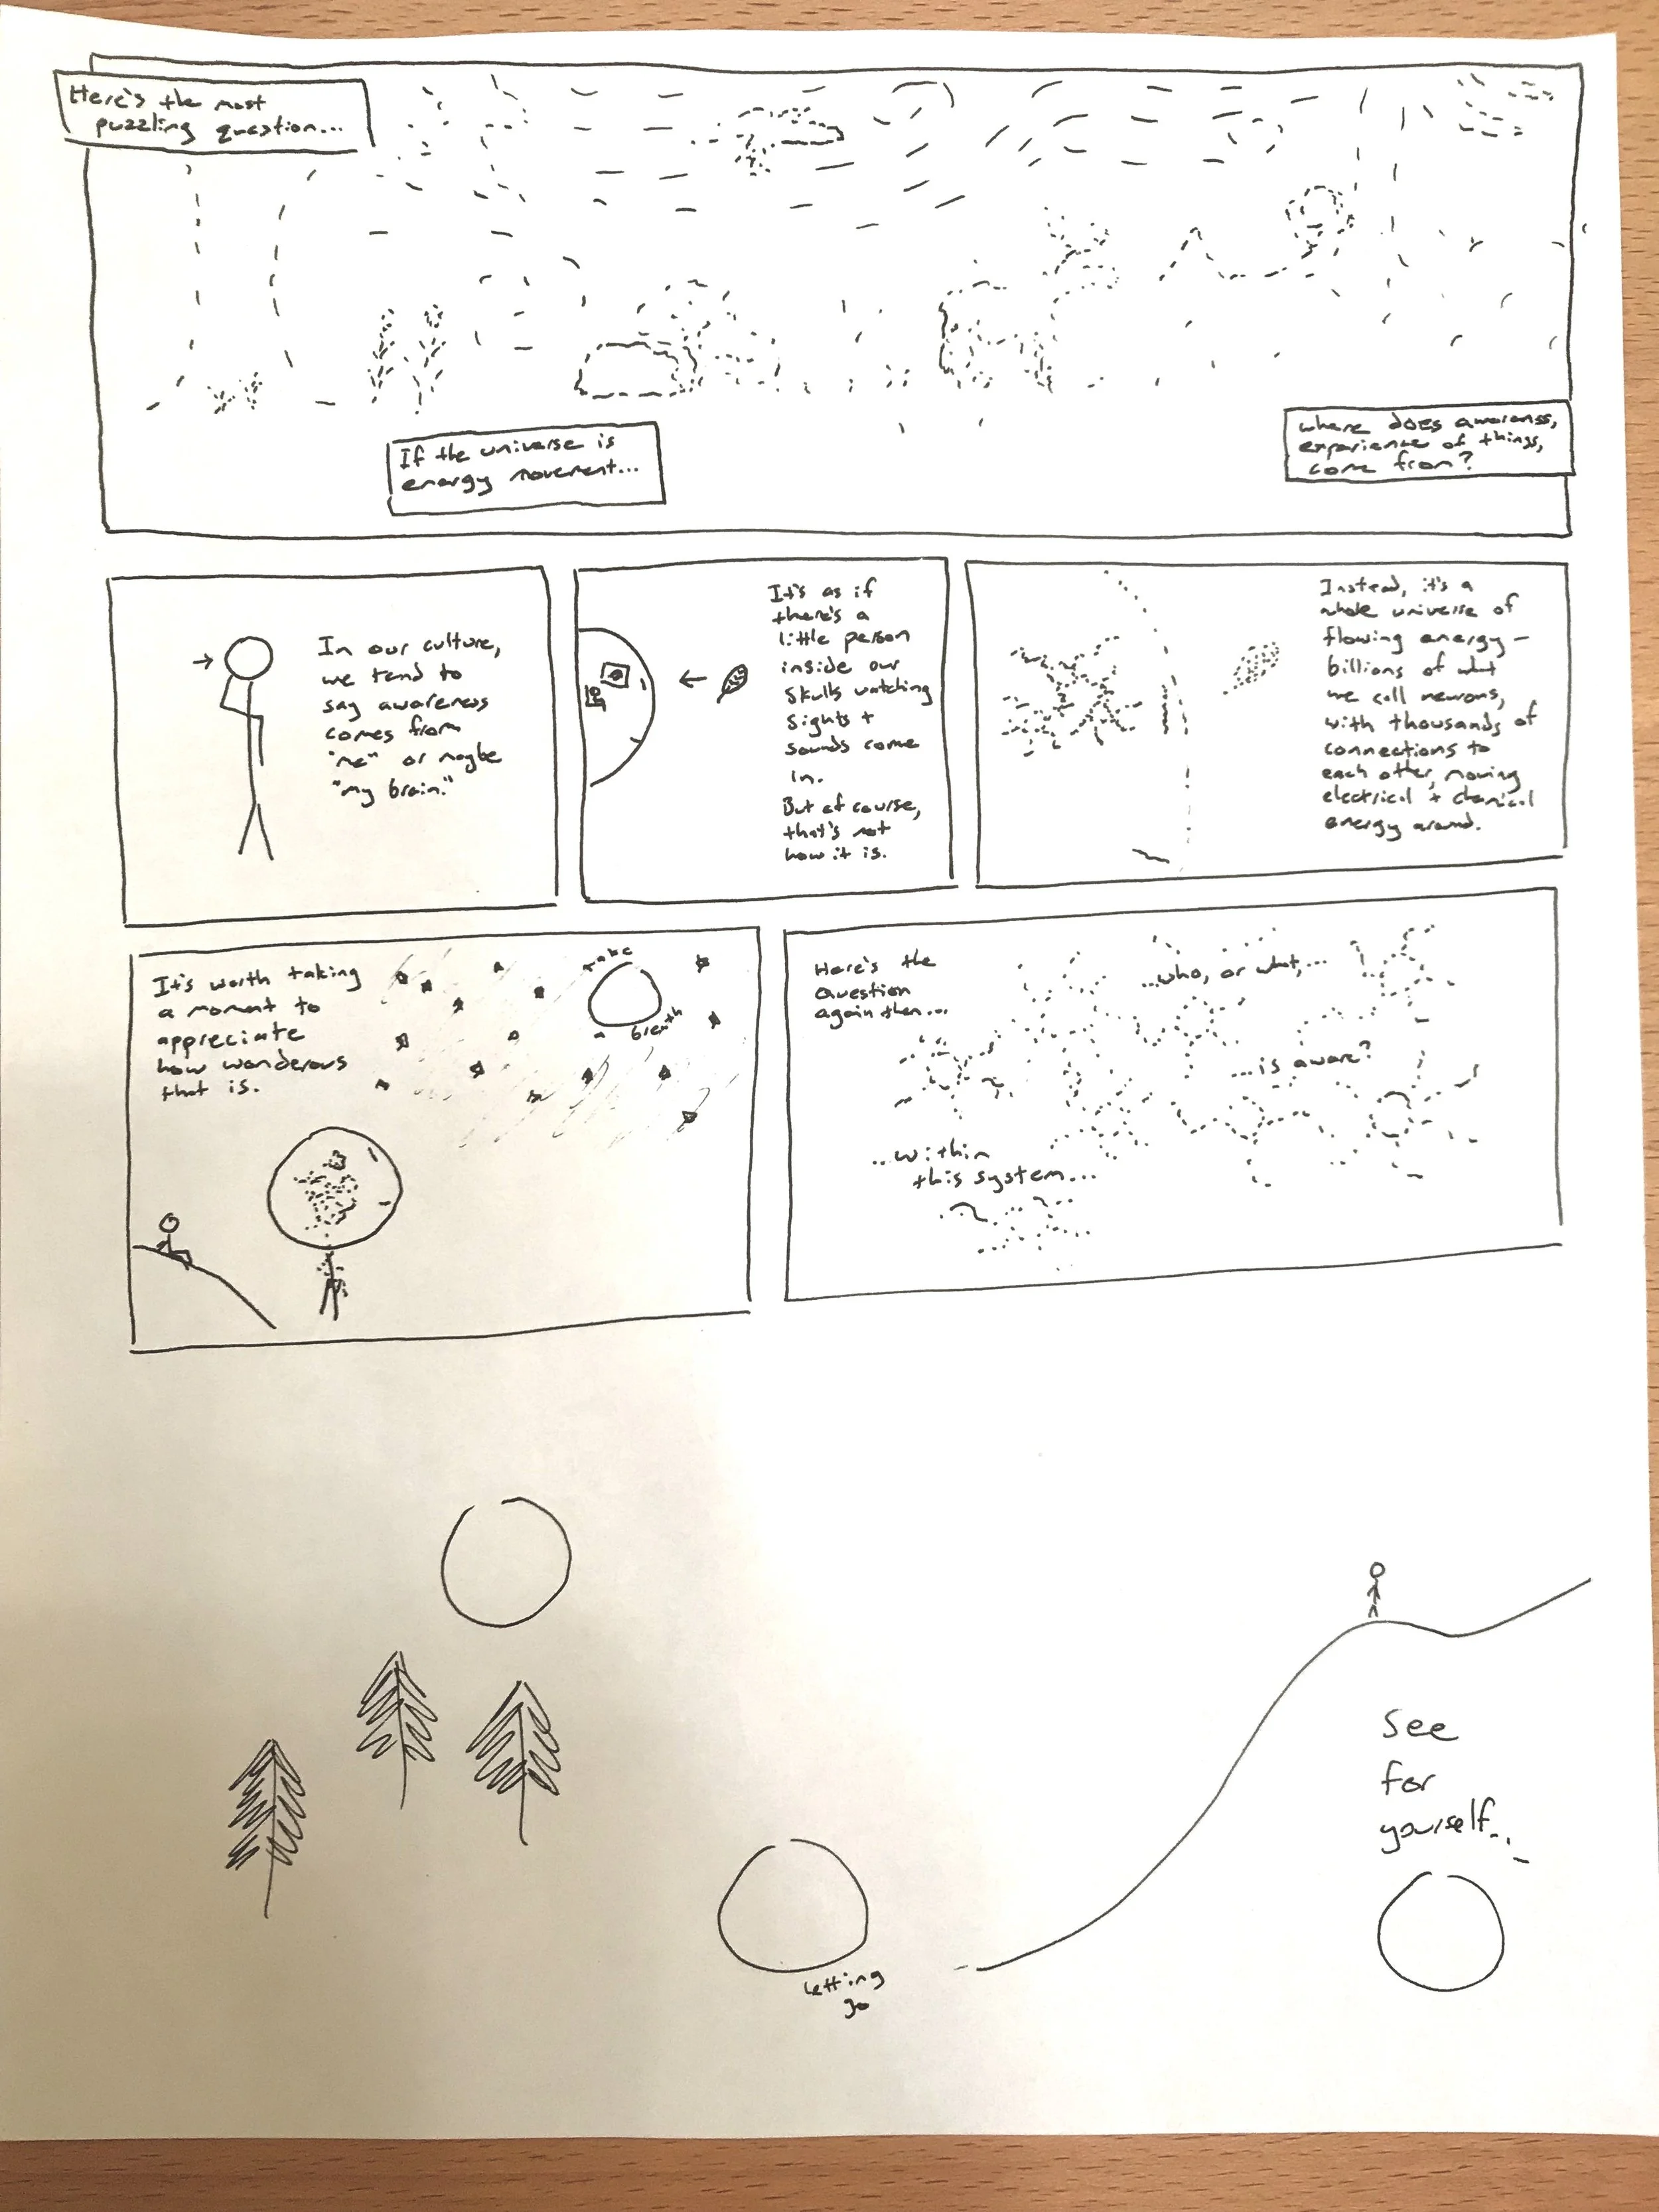 Here's the most
puzzling question...
If the universe is
energy movement...
where does awareness,
experience of things,
come from?
In our culture,
we tend to
say awareness
comes from
"me" or maybe
"my brain."
It's as if
there's a
little person
inside our
skulls watching
sights +
sounds come
in.
But of course,
that's not
how it is.
Instead, it's a
whole universe of
flowing energy –
billions of what
we call neurons,
with thousands of
connections to
each other, moving
electrical + chemical
energy around.
It's worth taking
a moment to
appreciate
how wonderous
that is.
take
a breath
Here's the
question
again then...
...who, or what,...
...within
this system...
...is aware?
letting
go
see
for
yourself...